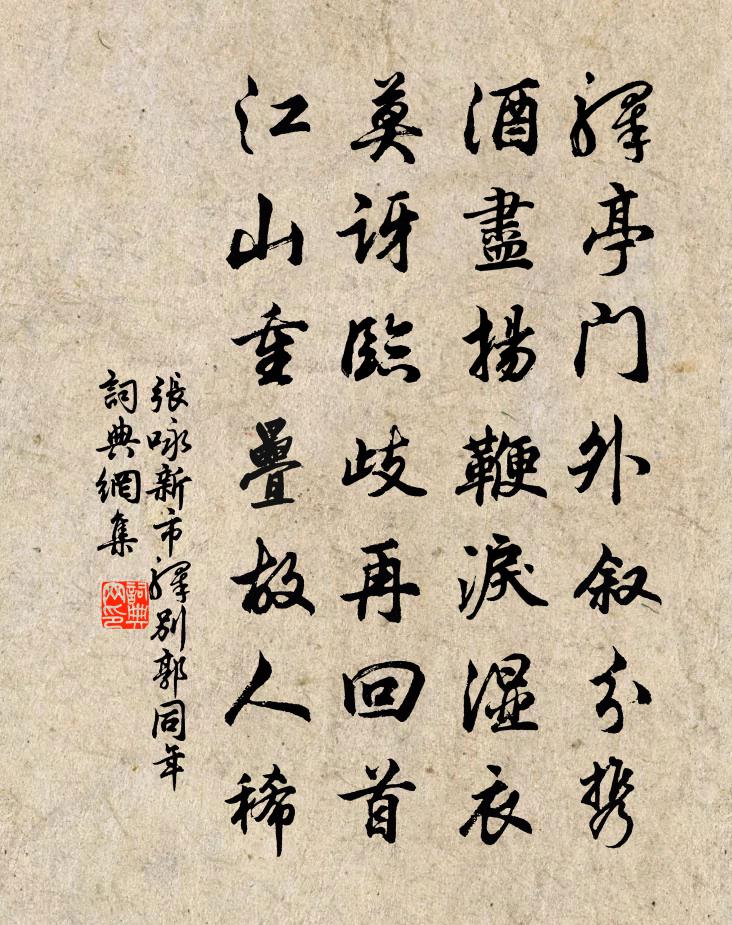 驛亭門外叙分携
酒盡揚鞭淚濕衣
莫訝臨歧再回首
江山重疊故人稀
張咏新市驛別郭同年
詞典網集
詞典
网印